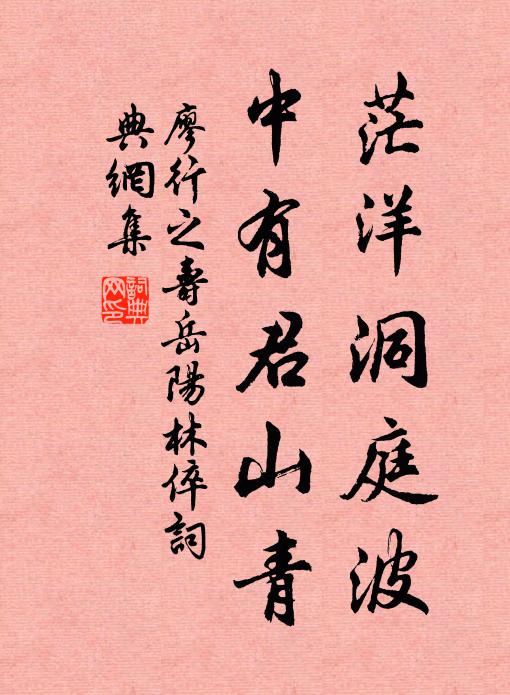 茫洋洞庭波
中有君山青
廖行之壽岳陽林倅詞
典網集
詞典
网印